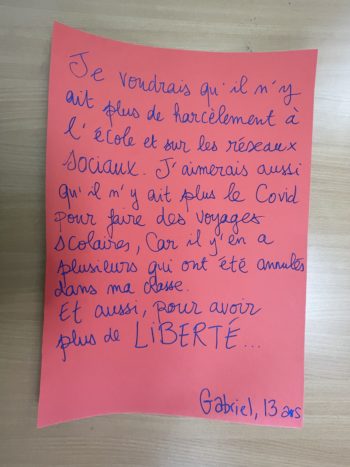 Je voudrais qu'il n'y
ait plus de harcèlement à
l'école et sur les réseaux
sociaux. J'aimerais aussi
qu'il n'y ait plus le Covid
pour faire des voyages
scolaires, Car il y'en a
plusieurs qui ont été annulés
dans ma classe.
Et aussi, pour avoir
plus de LIBERTÉ...
Gabriel, 13 ans